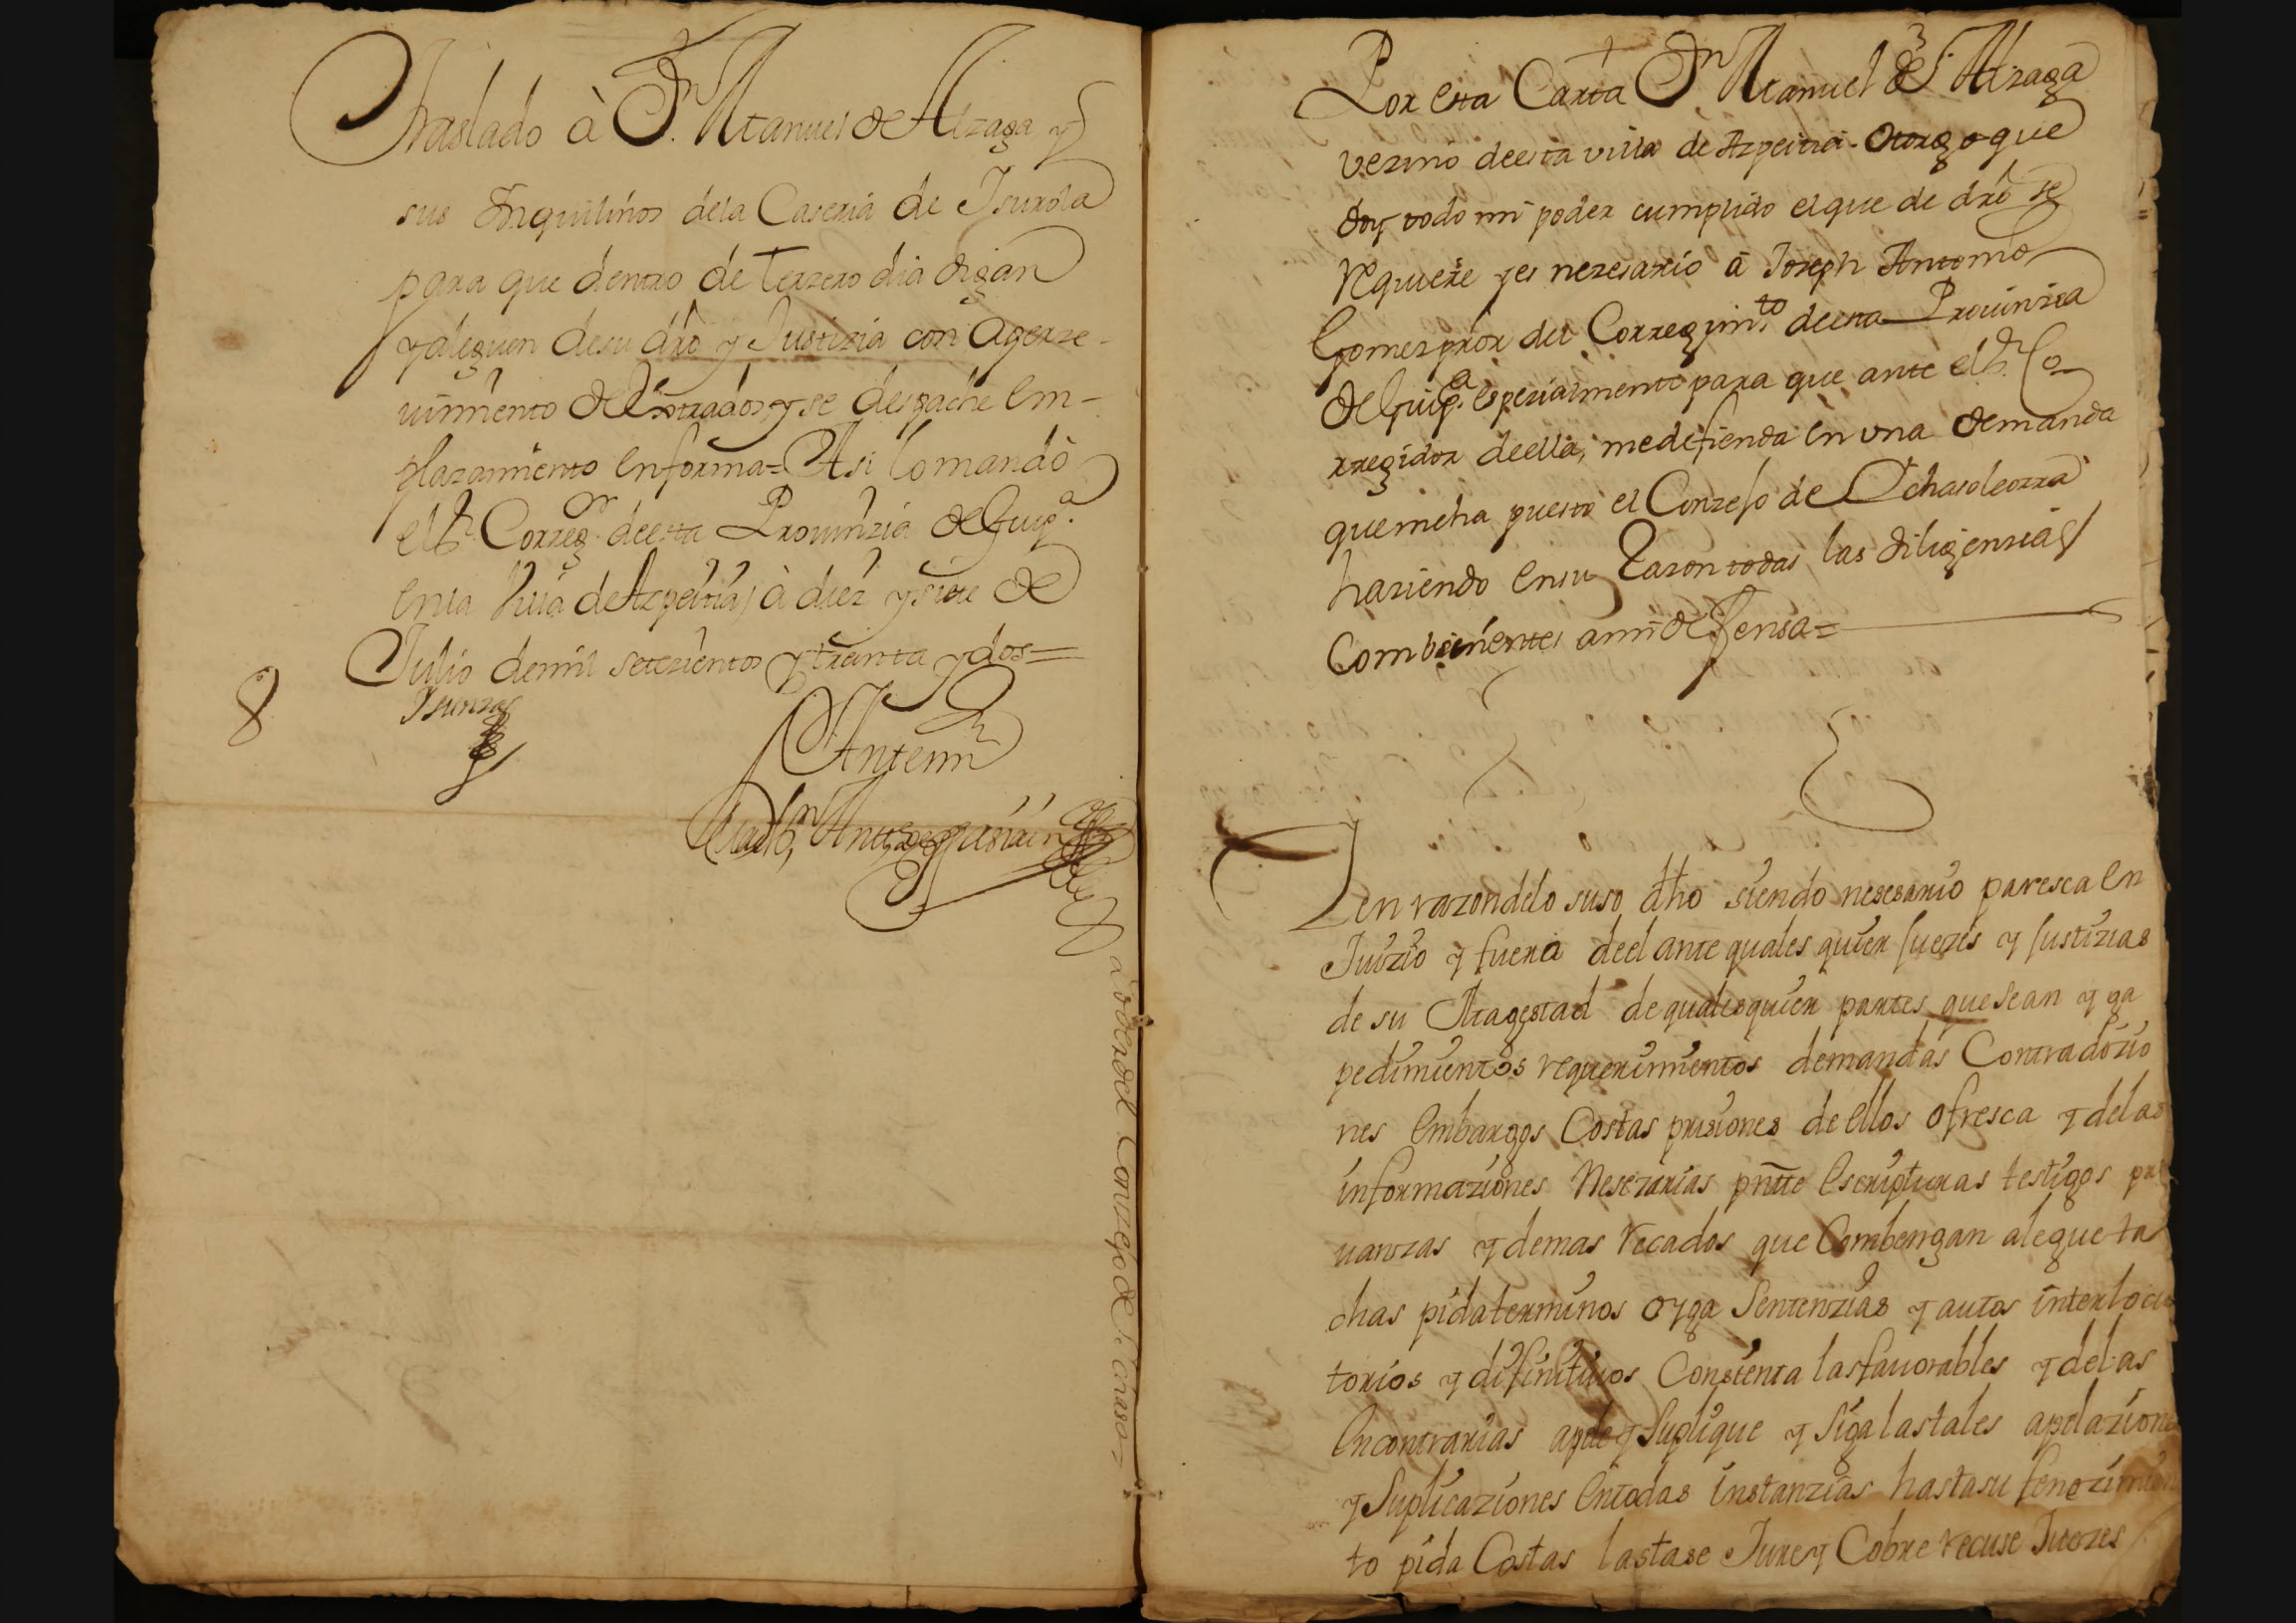 Traslado à Dn. Manuel de Alzaga y
sus Inquilinos dela Caseria de Isurola
para que dentro de terzero dia digan
y aleguen desu dro y Justizia con aperze-
uimiento de estrados, y se despache em-
plazamiento en forma = Asi lo mandò
el Sr. Correg.or de esta Prouinzia de Guip.a
en la Villa de Azpeitia, à diez y siete de
Julio de mil setezientos y treinta y dos =
8
Isunza
Antemi
Poder del Conzejo de
3
Por esta Carta Dn Manuel de Alzaga
vezino de esta villa de Azpeitia. Otorgo que
doy todo mi poder cumplido el que de dro se
requiere y es nezesario à Joseph Antonio
Gomez pror del Corregim.to de esta Prouinzia
de Guip.a espezialmente para que ante el Sr. Co-
rregidor de ella, me defienda en una demanda
que me ha puesto el Conzejo de
haziendo en su Razon todas las diligenzias
Combenientes a mi defensa =
Y en razon delo suso dho siendo nesesario paresca en
Juizio y fuera de el ante quales quier Juezes y Justizias
de su Magestad de quales quier partes que sean y ga
pedimientos requerimientos demandas Contradizio
nes embargos Costas prisiones de ellos ofresca y de las
informaziones Nesezarias pnte escripturas testigos pro
uanzas y demas recados que Combengan alegue ta
chas pida terminos oyga Sentenzias y autos interlocu
torios y difinitiuos Consienta las fauorables y delas
en contrarias apele y Suplique y Siga las tales apelazione
y Suplicaziones en todas instanzias hasta su fenezimien
to pida Costas las tase Jure y Cobre recuse Juezes